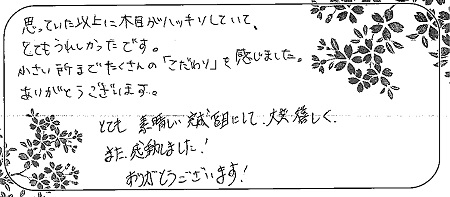 思っていた以上に木目がハッキリしていて、
とてもうれしかったです。
小さい所までたくさんの「こだわり」を感じました。
ありがとうございます。
とても 素晴しい 大変 嬉しく、
また、感動しました!
ありがとうございます!